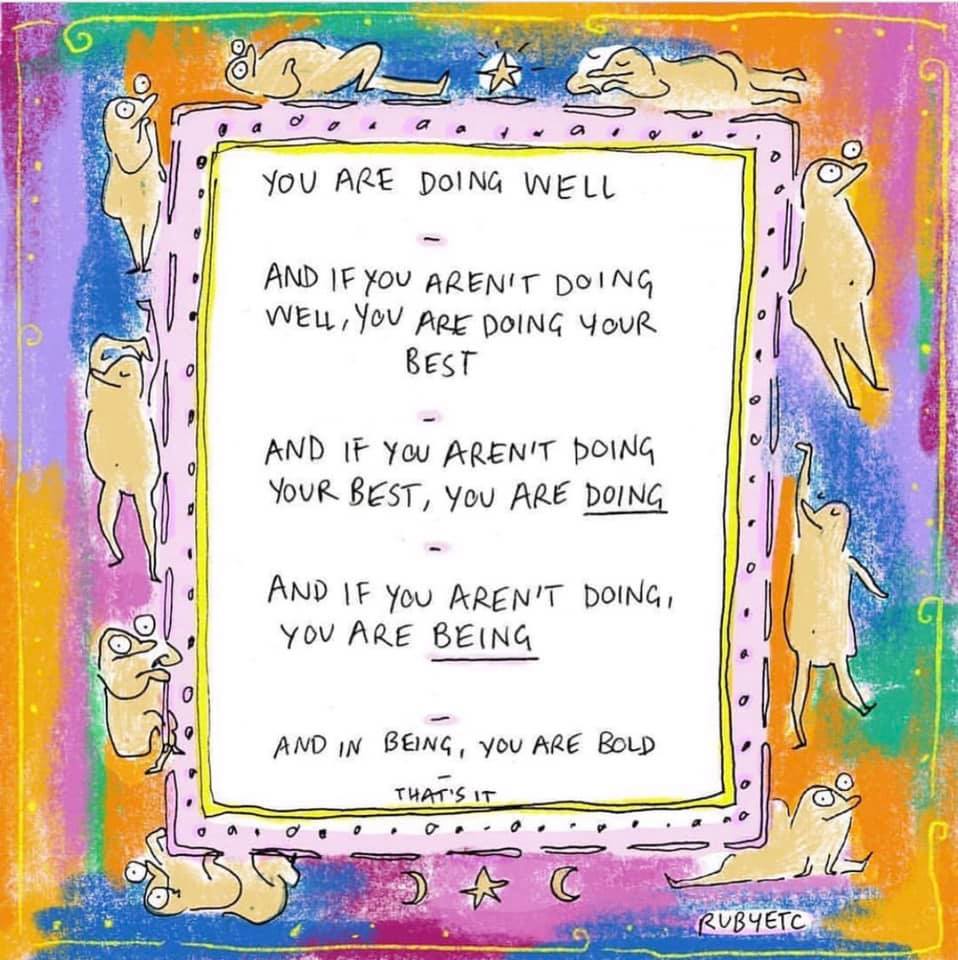 YOU ARE DOING WELL
-
AND IF YOU AREN'T DOING
WELL, YOU ARE DOING YOUR
BEST
-
AND IF YOU AREN'T DOING
YOUR BEST, YOU ARE DOING
-
AND IF YOU AREN'T DOING,
YOU ARE BEING
-
AND IN BEING, YOU ARE BOLD
-
THAT'S IT
RUBYETC